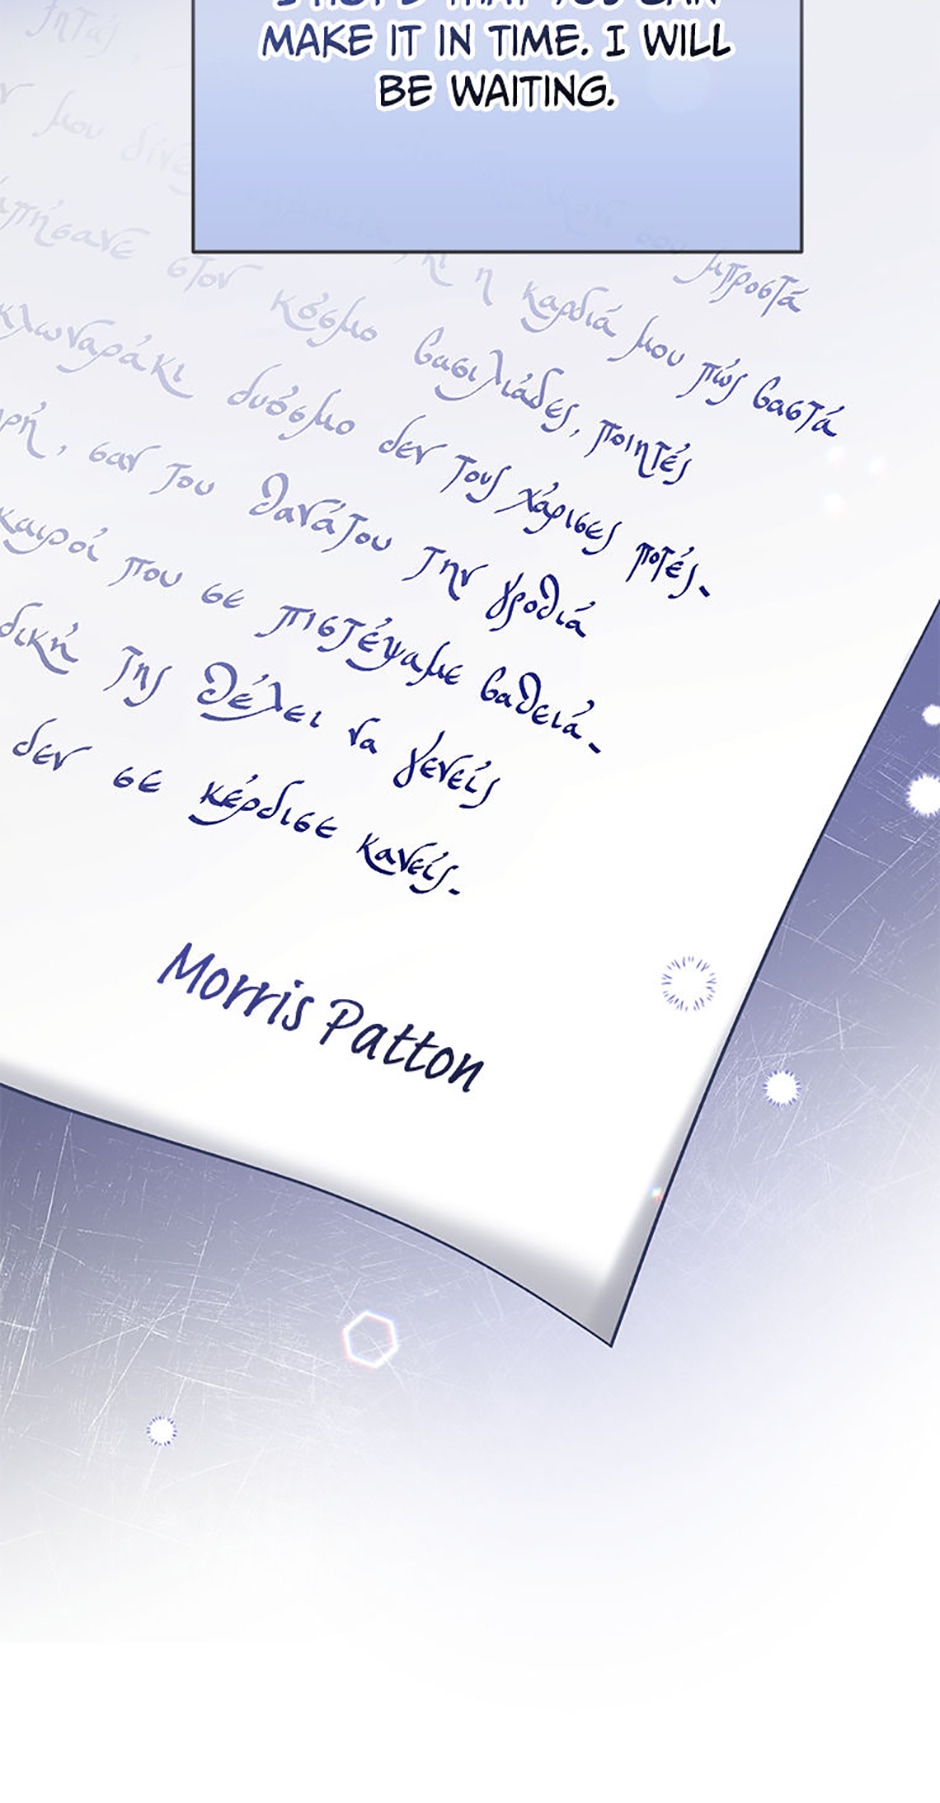 MAKE IT IN TIME. I WILL
BE WAITING.
μου
σου μπροστά
κι η καρδιά μου πώς βαστά
στον κόσμο βασιλιάδες, ποιητές
κλωναράκι δυόσμο δεν τους χάρισες ποτές.
σαν του θανάτου την γροθιά
καιροί που σε πιστέψαμε βαθειά.
δική της θέλει να γενείς
δεν σε κέρδισε κανείς.
Morris Patton